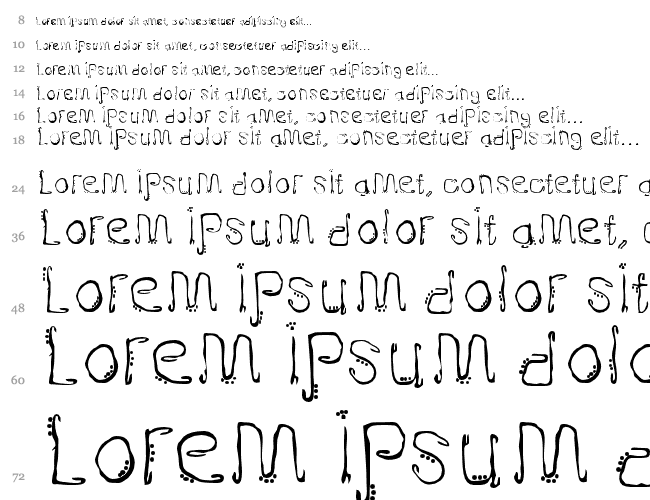 8 Lorem ipsum dolor sit amet, consectetuer adipiscing elit...
10 Lorem ipsum dolor sit amet, consectetuer adipiscing elit...
12 Lorem ipsum dolor sit amet, consectetuer adipiscing elit...
14 Lorem ipsum dolor sit amet, consectetuer adipiscing elit...
16 Lorem ipsum dolor sit amet, consectetuer adipiscing elit...
18 Lorem ipsum dolor sit amet, consectetuer adipiscing elit...
24 Lorem ipsum dolor sit amet, consectetuer a
36 Lorem ipsum dolor sit amet, c
48 Lorem ipsum dolor sit
60 Lorem ipsum dolo
72 Lorem ipsum d